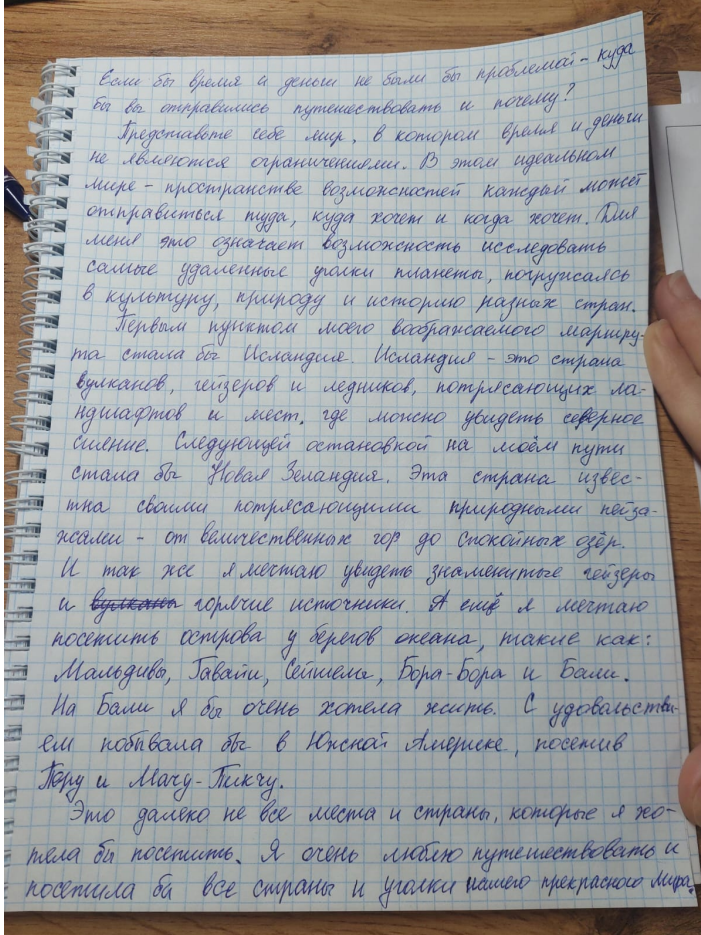 Если бы время и деньги не были бы проблемой - куда
бы вы отправились путешествовать и почему?
Представьте себе мир, в котором время и деньги
не являются ограничениями. В этом идеальном
мире - пространстве возможностей каждый может
отправиться туда, куда хочет и когда хочет. Для
меня это означает возможность исследовать
самые удаленные уголки планеты, погружаясь
в культуру, природу и историю разных стран.
Первым пунктом моего воображаемого маршру-
та стала бы Исландия. Исландия - это страна
вулканов, гейзеров и ледников, потрясающих ла-
ндшафтов и мест, где можно увидеть северное
сияние. Следующей остановкой на моём пути
стала бы Новая Зеландия. Эта страна извес-
тна своими потрясающими природными пейза-
жами - от величественных гор до спокойных озёр.
И так же я мечтаю увидеть знаменитые гейзеры
и вулканы горячие источники. А ещё я мечтаю
посетить острова у берегов океана, такие как:
Мальдивы, Гавайи, Сейшелы, Бора-Бора и Бали.
На Бали я бы очень хотела жить. С удовольстви-
ем побывала бы в Южной Америке, посетив
Перу и Мачу-Пикчу.
Это далеко не все места и страны, которые я хо-
тела бы посетить. Я очень люблю путешествовать и
посетила бы все страны и уголки нашего прекрасного мира.